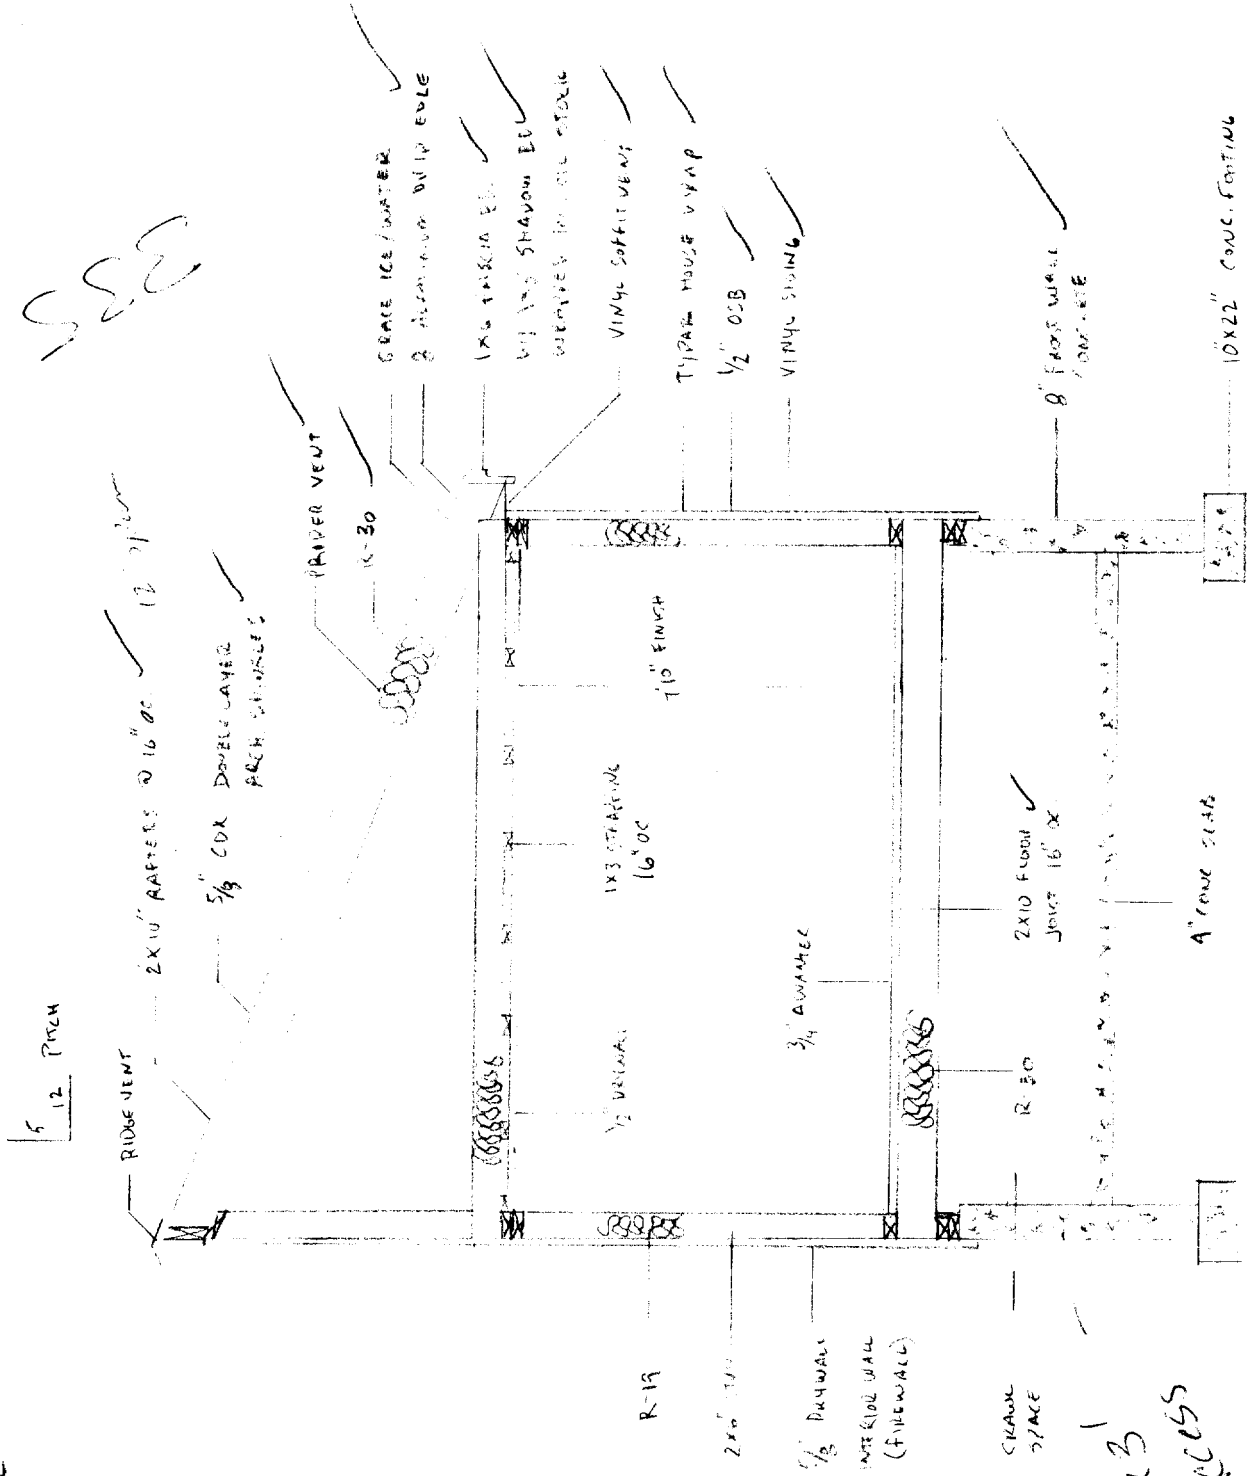 5
12 PITCH
RIDGE VENT
2X10" RAFTERS @ 16" OC
12
5/8" CDX DOUBLE LAYER
ARCH SHINGLES
PROPER VENT
R-30
GRACE ICE/WATER
8 ALUMINUM DRIP EDGE
1X6 FASCIA
W/ 1X3 SHADOW
WRAPPED IN STOCK
VINYL SOFFIT VENT
TYPAR HOUSE WRAP
1/2" OSB
VINYL SIDING
8" FROST WALL
CONCRETE
10X22" CONC. FOOTING
7'10" FINISH
1X3 STRAPPING
16" OC
1/2 DRYWALL
3/4 ADVANTEC
2X10 FLOOR
JOIST 16" OC
R-30
4" CONC SLAB
R-19
2X6"
5/8" DRYWALL
INTERIOR WALL
(FIREWALL)
CRAWL
SPACE
3'